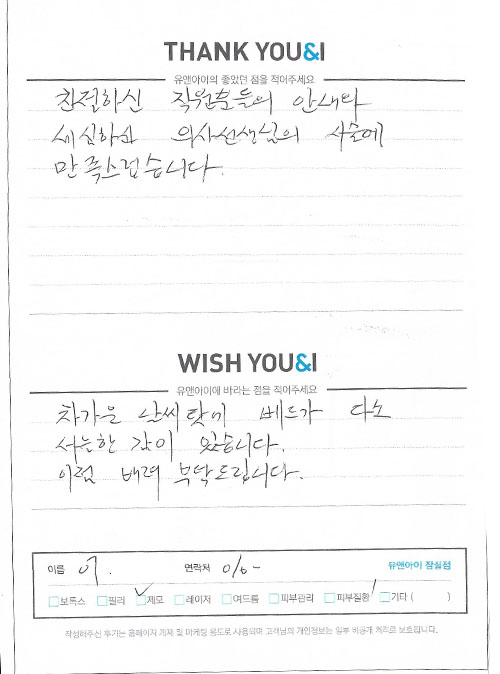 THANK YOU&I
유앤아이의 좋았던 점을 적어주세요
친절하신 직원분들의 안내와
세심하신 의사선생님의 시술에
만족스럽습니다.
WISH YOU&I
유앤아이에 바라는 점을 적어주세요
차가운 날씨 탓에 베드가 다소
서늘한 감이 있습니다.
이점 배려 부탁드립니다.
이름 이 . 연락처 010- 유앤아이 잠실점
보톡스 필러 제모 레이저 여드름 피부관리 피부질환 기타 ( )
작성해주신 후기는 홈페이지 게재 및 마케팅 용도로 사용되며 고객님의 개인정보는 일부 비공개 처리로 보호됩니다.